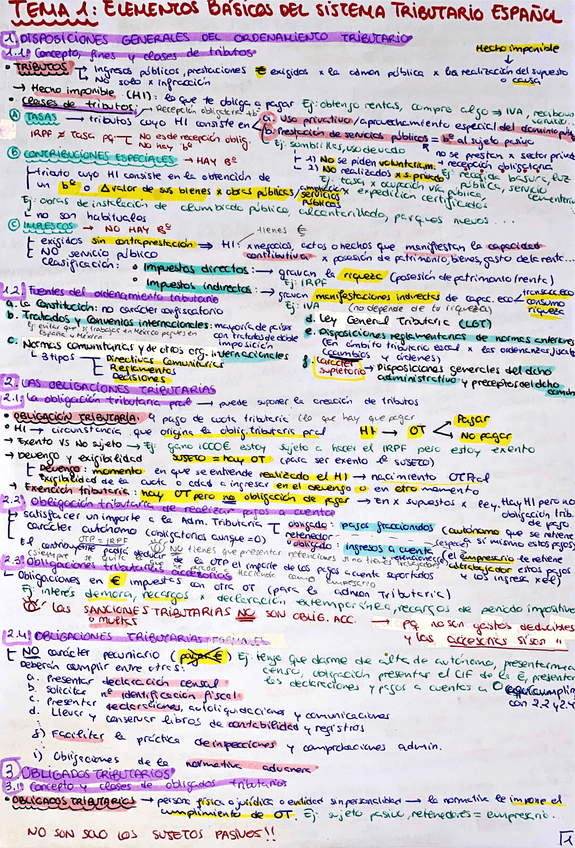 TEMA 1: ELEMENTOS BÁSICOS DEL SISTEMA TRIBUTARIO ESPAÑOL
1. DISPOSICIONES GENERALES DEL ORDENAMIENTO TRIBUTARIO
1.1. Concepto, fines y clases de tributos
Hecho imponible
• TRIBUTOS: Ingresos públicos, prestaciones € exigidos x la admon pública x la realización del supuesto
No sado x infracción o causa
→ Hecho imponible (HI): lo que te obliga a pagar Ej: obtengo rentas, compro algo → IVA, recibo
• Clases de tributos: Recepción obligatoria
A TASAS → tributos cuyo HI consiste en a. Uso privativo/aprovechamiento especial del dominio
b. Prestación de servicios públicos = bº al sujeto pasivo
IRPF ≠ tasa pq No es de recepción oblig.
No hay Bº
Ej: sombrillas, uso de vado
no se prestan x sector privado
B CONTRIBUCIONES ESPECIALES → HAY Bº
1) No se piden voluntariam. = recepción obligatoria
2) No realizados x s. privado
tributo cuyo HI consiste en la obtención de
un bº o Δ valor de sus bienes x obras públicas/ servicios públicos
Ej: tasa x ocupación vía pública, servicio
x expedición certificados
Ej: obras de instalación de alumbrado público, alcantarillado, parques nuevos...
no son habituales
C IMPUESTOS → NO HAY Bº
tienes €
exigidos sin contraprestación → HI: x negocios, actos o hechos que manifiestan la capacidad
NO servicio público contributiva x posesión de patrimonio, bienes, gasto de la renta...
Clasificación: • impuestos directos: → gravan la riqueza (posesión de patrimonio/renta)
Ej: IRPF
• impuestos indirectos: → gravan manifestaciones indirectas de capac. eco consumo riqueza
Ej: IVA (no depende de tu riqueza)
1.2. Fuentes del ordenamiento tributario
a. La Constitución: no carácter confiscatorio
b. Tratados y Convenios internacionales: mayoría de países
con tratados de doble imposición
c. Normas comunitarias y de otros org. internacionales
3 tipos Directivas comunitarias
Reglamentos
Decisiones
d. Ley General Tributaria (LGT)
e. Disposiciones reglamentarias de normas anteriores
f. Carácter supletorio → Disposiciones generales del dcho
administrativo y preceptos del dcho común
2. LAS OBLIGACIONES TRIBUTARIAS
2.1. La obligación tributaria pral → puede suponer la creación de tributos
• OBLIGACIÓN TRIBUTARIA: pago de cuota tributaria (lo que hay que pagar)
→ HI → circunstancia que origina la oblig. tributaria pral HI → OT Pagar
No pagar
→ Exento VS No sujeto → Ej: gano 1000€ estoy sujeto a hacer el IRPF pero estoy exento
→ Devengo y exigibilidad SUJETO = hay OT (para ser exento → SUJETO)
Devengo: momento en que se entiende realizado el HI → nacimiento OTPral
Exigibilidad de la cuota o cdad a ingresar en el devengo o en otro momento
→ Exención tributaria: hay OT pero no obligación de pagar → en x supuestos x ley. Hay HI pero no
oblig. trib.
de pago
2.2. Obligación tributaria de realizar pagos a cuenta
satisfacer un importe a la Adm. Tributaria obligado: pagos fraccionados (autónomo que se retiene
carácter autónomo (obligatorias aunque = 0) retenedor a sí mismo estos pagos)
obligado: ingresos a cuenta (el empresario de retiene
al trabajador estos pagos
y los ingresa x él)
El contribuyente puede deducir de la OTP el importe de los pagos a cuenta soportados
2.3. Obligaciones tributarias accesorias
Obligaciones en € impuestas con otra OT (para la admon Tributaria)
Ej: interés demora, recargos x declaración extemporánea, recargos de período impositivo
Las SANCIONES TRIBUTARIAS NO SON OBLIG. ACC. → pq no son gastos deducibles
o multas y las accesorias sí son "
2.4. OBLIGACIONES TRIBUTARIAS FORMALES
NO carácter pecuniario (pagar €) Ej: tengo que darme de alta de autónomo, presentar mi
Deberán cumplir entre otras: censo, obligación presentar el CIF de la E, presentar
a. Presentar declaración censal las declaraciones y pagos a cuentas
b. solicitar nº identificación fiscal con 2.2 y 2.4
c. Presentar declaraciones, autoliquidaciones y comunicaciones
d. Llevar y conservar libros de contabilidad y registros
f) Facilitar la práctica de inspecciones y comprobaciones admin.
i) Obligaciones de la normativa aduanera
3. OBLIGADOS TRIBUTARIOS
3.1. Concepto y clases de obligados tributarios
• OBLIGADOS TRIBUTARIOS → persona física o jurídica o entidad sin personalidad → la normativa le impone el
cumplimiento de OT. Ej: sujeto pasivo, retenedores = empresario...
NO SON SOLO LOS SUJETOS PASIVOS!!
1